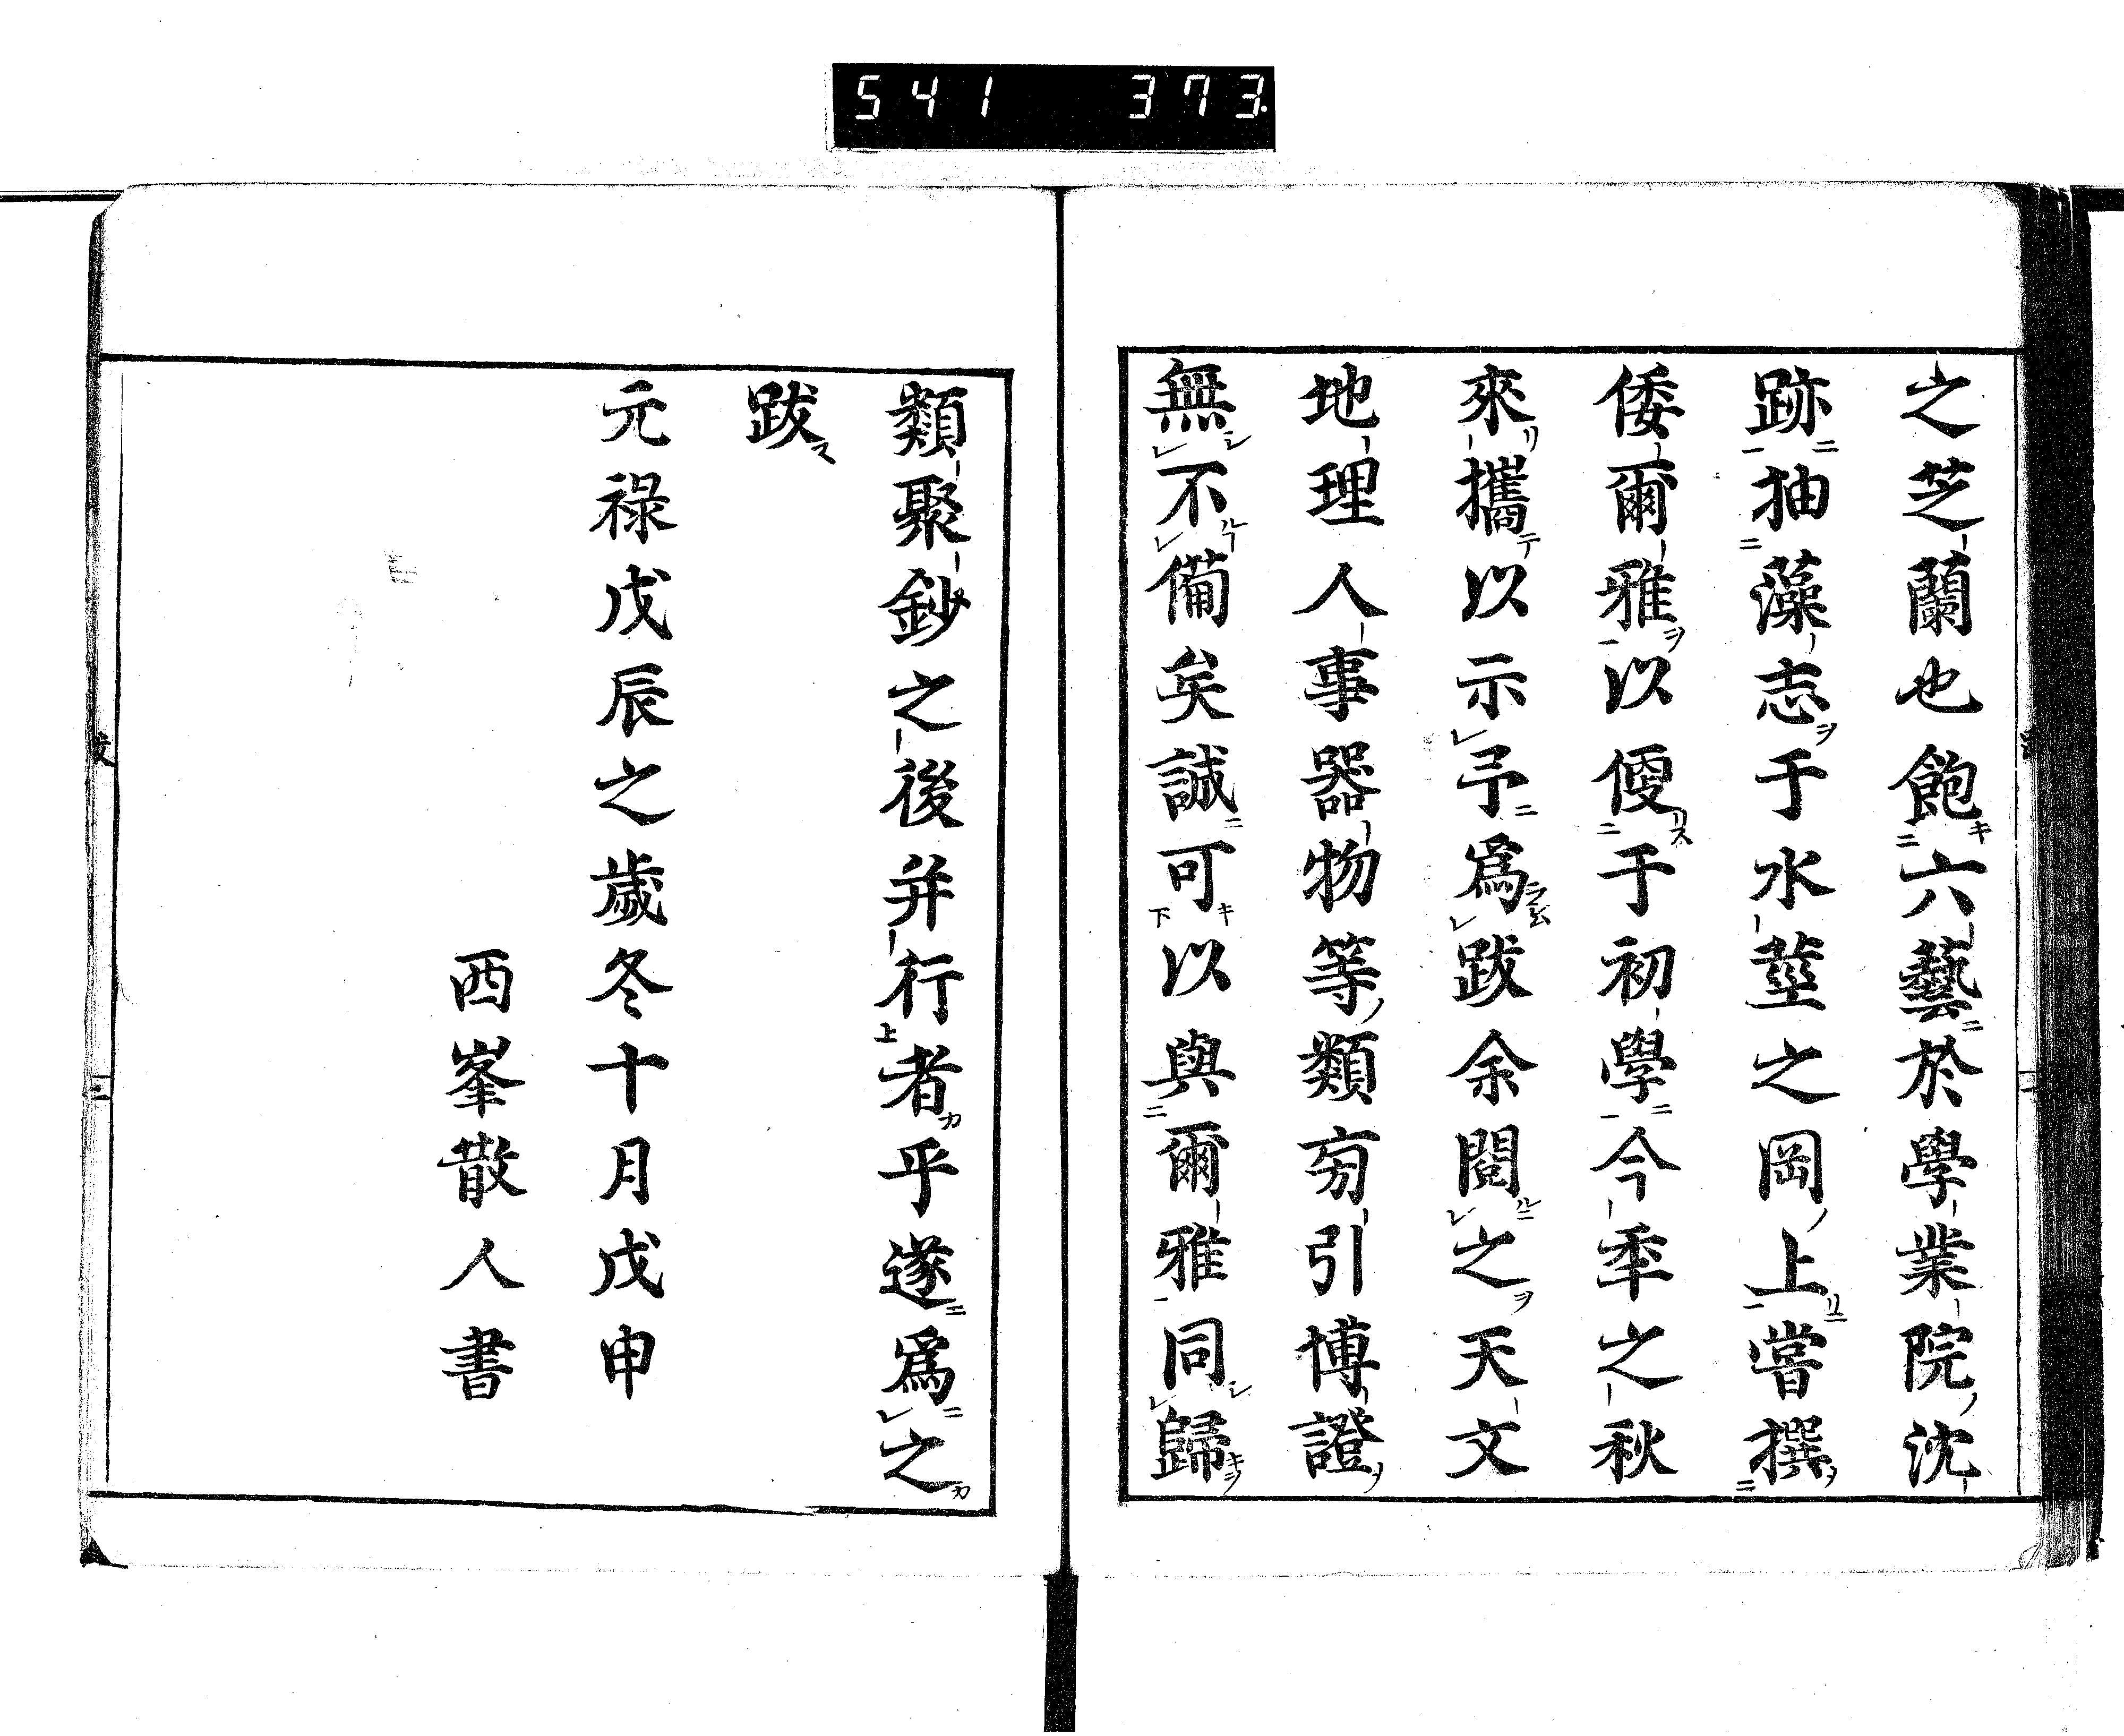 541 373
之芝蘭也飽六藝於學業院沈
跡抽藻志于水莖之岡上嘗撰
倭爾雅以便于初學今年之秋
來攜以示予爲跋余閱之天文
地理人事器物等類旁引博證
無不備矣誠可以與爾雅同歸
類聚鈔之後并行者乎遂爲之
跋
元祿戊辰之歲冬十月戊申
西峯散人書